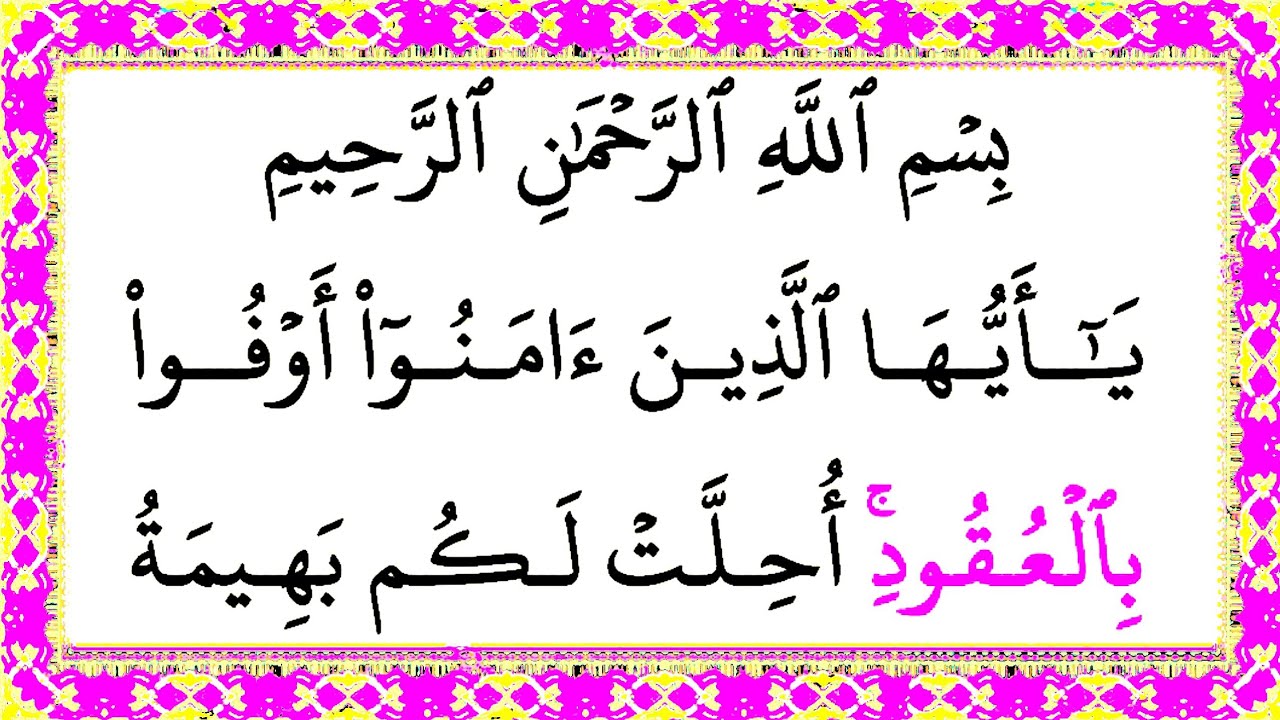 بِسْمِ ٱللَّهِ ٱلرَّحْمَٰنِ ٱلرَّحِيمِ
يَـٰٓأَيُّهَا ٱلَّذِينَ ءَامَنُوٓا۟ أَوْفُوا۟
بِٱلْعُقُودِ ۚ أُحِلَّتْ لَكُم بَهِيمَةُ